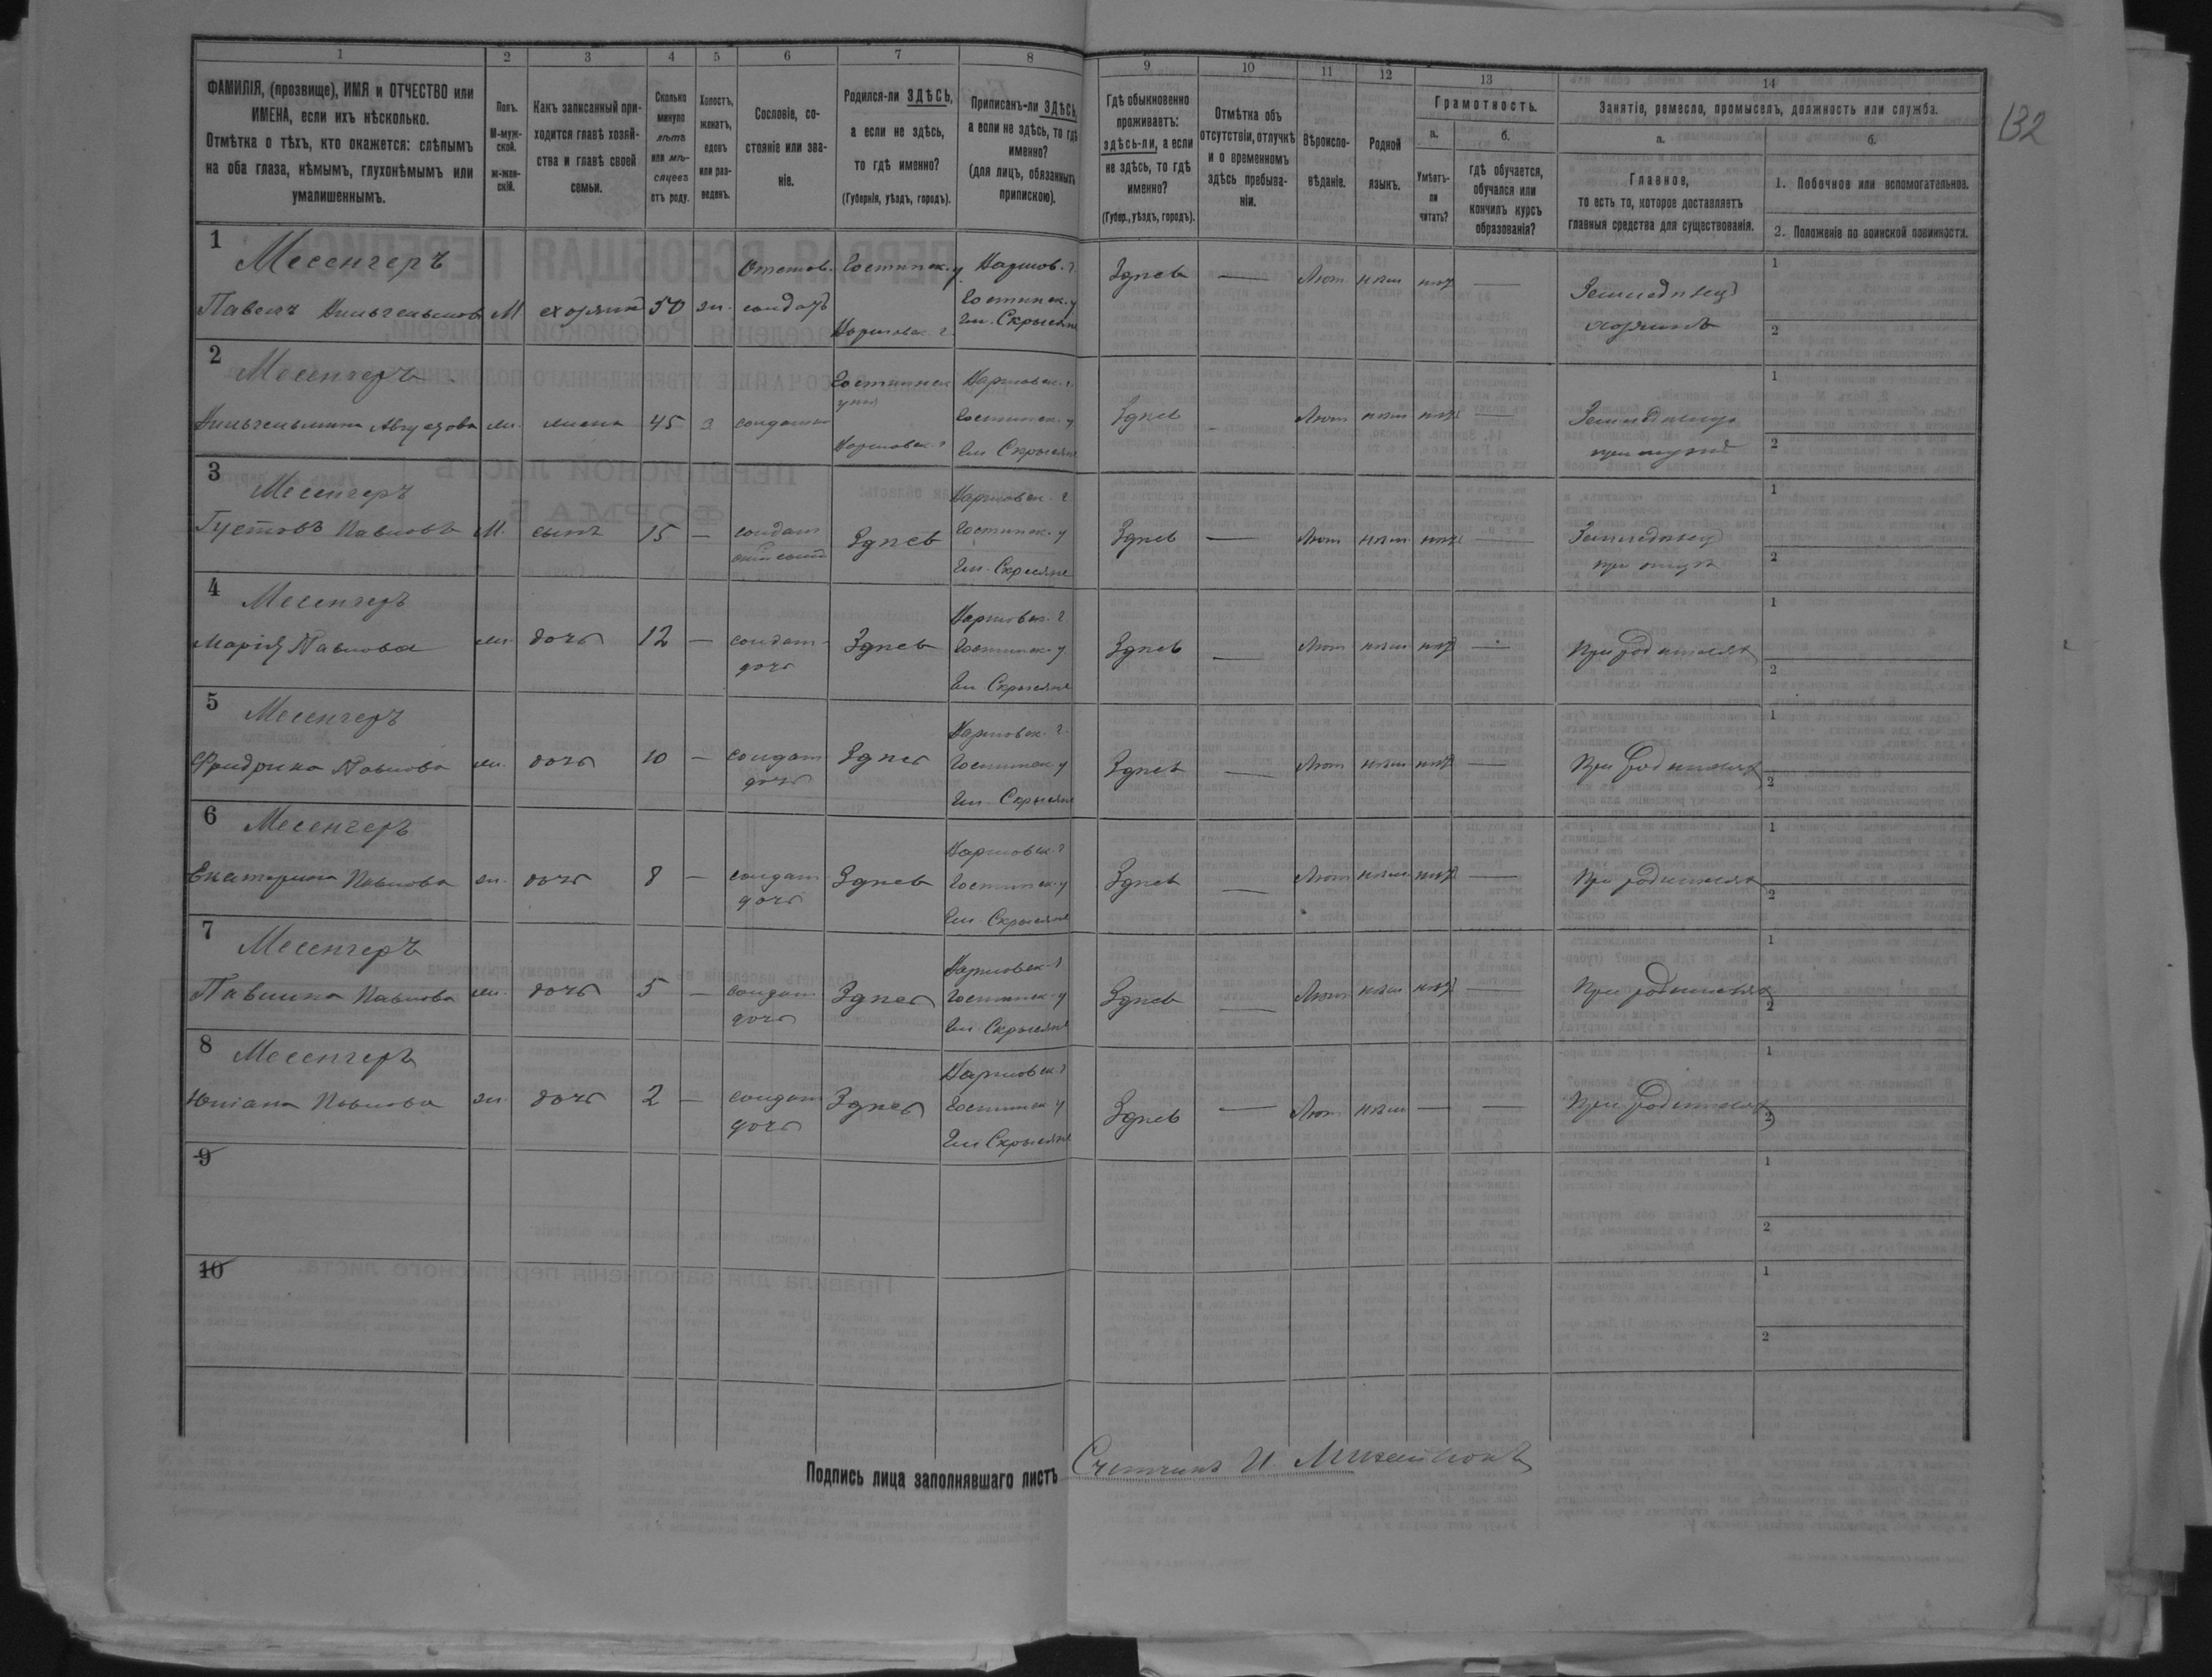 1 2 3 4 5 6 7 8 9 10 11 12 13 14
132
ФАМИЛІЯ, (прозвище), ИМЯ и ОТЧЕСТВО или
ИМЕНА, если ихъ нѣсколько.
Отмѣтка о тѣхъ, кто окажется: слѣпымъ
на оба глаза, нѣмымъ, глухонѣмымъ или
умалишеннымъ.
Полъ.
М-муж-
ской.
ж-жен-
скій.
Какъ записанный при-
ходится главѣ хозяй-
ства и главѣ своей
семьи.
Сколько
минуло
лѣтъ
или мѣ-
сяцевъ
отъ роду.
Холостъ,
женатъ,
вдовъ
или раз-
веденъ.
Сословіе, со-
стояніе или зва-
ніе.
Родился-ли ЗДѢСЬ,
а если не здѣсь,
то гдѣ именно?
(Губернія, уѣздъ, городъ).
Приписанъ-ли ЗДѢСЬ,
а если не здѣсь, то гдѣ
именно?
(для лицъ, обязанныхъ
припискою).
Гдѣ обыкновенно
проживаетъ:
здѣсь-ли, а если
не здѣсь, то гдѣ
именно?
(Губер., уѣздъ, городъ).
Отмѣтка объ
отсутствіи, отлучкѣ
и о временномъ
здѣсь пребыва-
ніи.
Вѣроиспо-
вѣданіе.
Родной
языкъ.
Грамотность.
а.
Умѣетъ-
ли
читать?
б.
Гдѣ обучается,
обучался или
кончилъ курсъ
образованія?
Занятіе, ремесло, промыселъ, должность или служба.
а.
Главное,
то есть то, которое доставляетъ
главныя средства для существованія.
б.
1. Побочное или вспомогательное.
2. Положеніе по воинской повинности.
1
Месенгеръ
Павелъ М хозяинъ 50 солдатъ
Гостинск. у
Варшавск. г
Гостинск. у
Гм. Скрысяне
Здѣсь — Лют нѣм нѣтъ —
Земледѣлецъ
хозяинъ
1
2
2
Месенгеръ
Вильгельмина Августова жена 45 з солдатка
Гостинск
Варшавск. г
Варшавск. г.
Гостинск. у
Гм Скрысяне
Здѣсь — Лют нѣм нѣтъ —
при мужѣ
1
2
3
Месенгеръ
Густавъ Павловъ М. сынъ 15 — солдат
скій сынъ
Здѣсь
Варшавск. г
Гостинск. у
Гм. Скрысяне
Здѣсь — Лют нѣм нѣтъ —
Земледѣлец
при отцѣ
1
2
4
Месенгеръ
Марія Павлова дочь 12 — солдат
дочь
Здѣсь
Варшавск. г.
Гостинск. у
Гм. Скрысяне
Здѣсь — Лют нѣм нѣтъ —
При родителях
1
2
5
Месенгеръ
Фридрика Павлова дочь 10 — солдат
дочь
Здѣсь
Варшавск. г.
Гостинск. у
Гм. Скрысяне
Здѣсь — Лют нѣм нѣтъ —
При родителях
1
2
6
Месенгеръ
Екатерина Павлова дочь 8 — солдат
дочь
Здѣсь
Варшавск. г
Гостинск. у
Гм Скрысяне
Здѣсь — Лют нѣм нѣтъ —
При родителях
1
2
7
Месенгеръ
Павлина Павлова дочь 5 — солдат
дочь
Здѣсь
Варшавск. г
Гостинск. у
Гм. Скрысяне
Здѣсь — Лют нѣм нѣтъ —
При родителях
1
2
8
Месенгеръ
Юліана Павлова дочь 2 — солдат
дочь
Здѣсь
Варшавск. г
Гостинск у
Гм Скрысяне
Здѣсь — Лют нѣм — —
При родителях
1
2
9
1
2
10
1
2
Подпись лица заполнявшаго листъ Счетчикъ И.